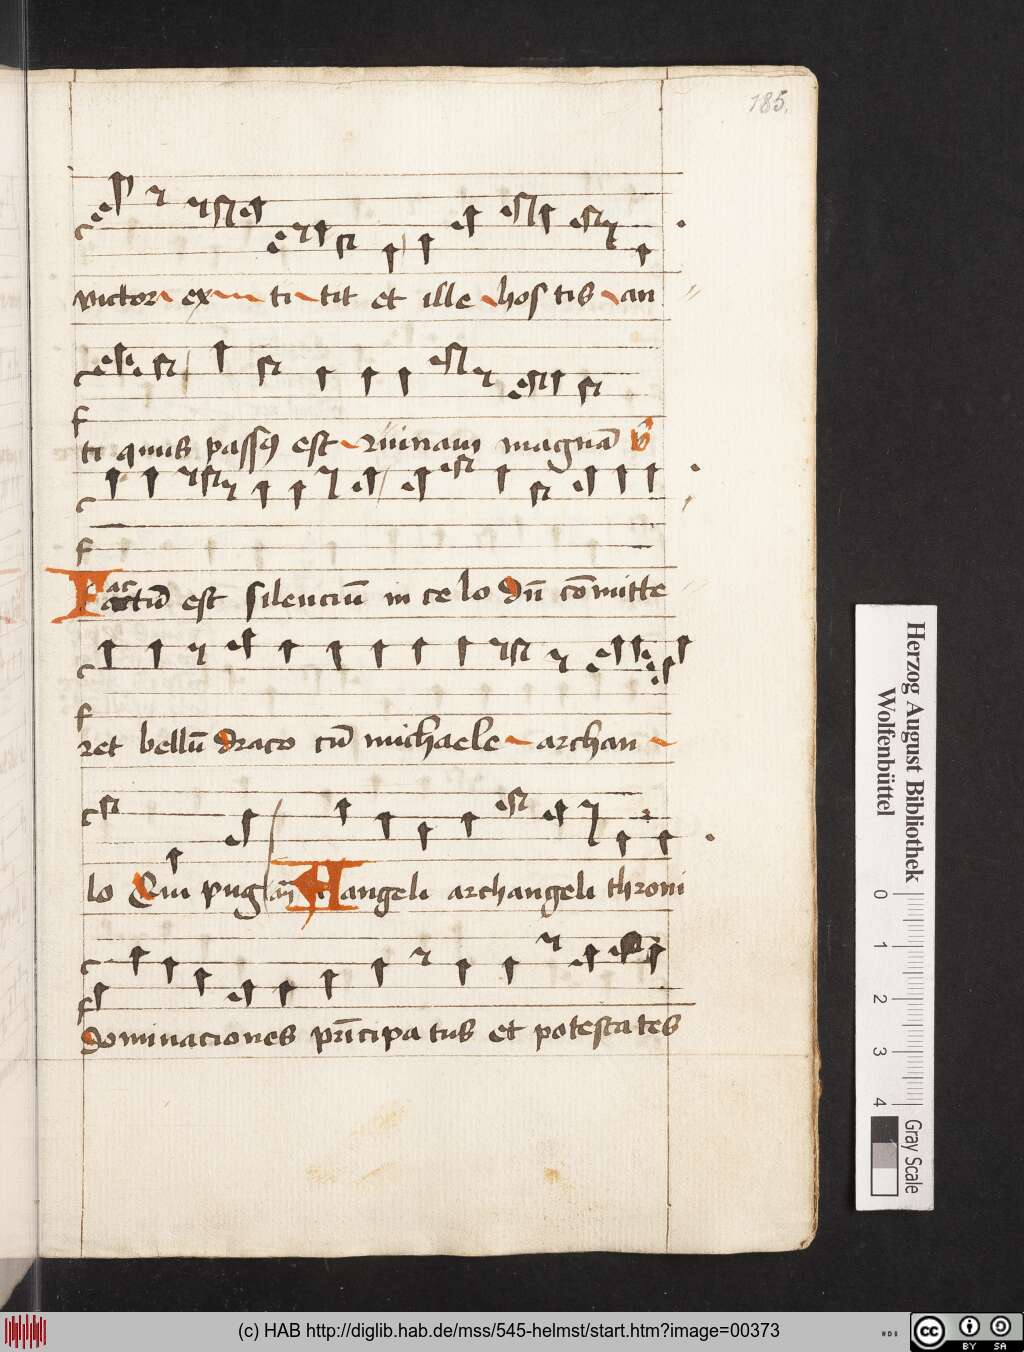 185.
victor ex ti tit et ille hos tis an
ti quus passus est ruinam magnā
Factū est silenciū in ce lo Dūm cōmitte
ret bellū draco cū michaele archan
lo Qui pug Angeli archangeli throni
dominaciones prīcipa tus et potesta tes
Herzog August Bibliothek
Wolfenbüttel
0 1 2 3 4
Gray Scale
(c) HAB http://diglib.hab.de/mss/545-helmst/start.htm?image=00373
cc BY SA